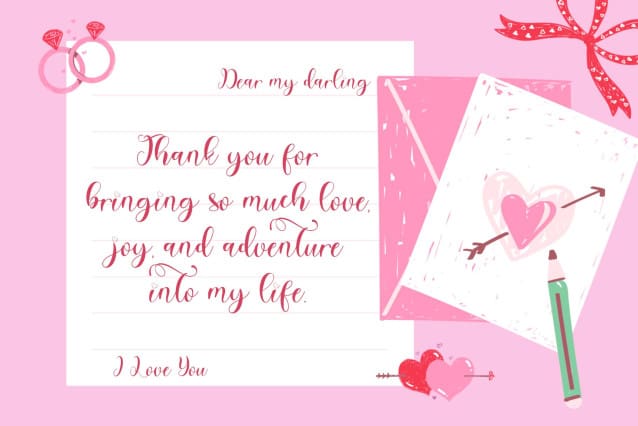 Dear my darling
Thank you for
bringing so much love,
joy, and adventure
into my life.
I Love You